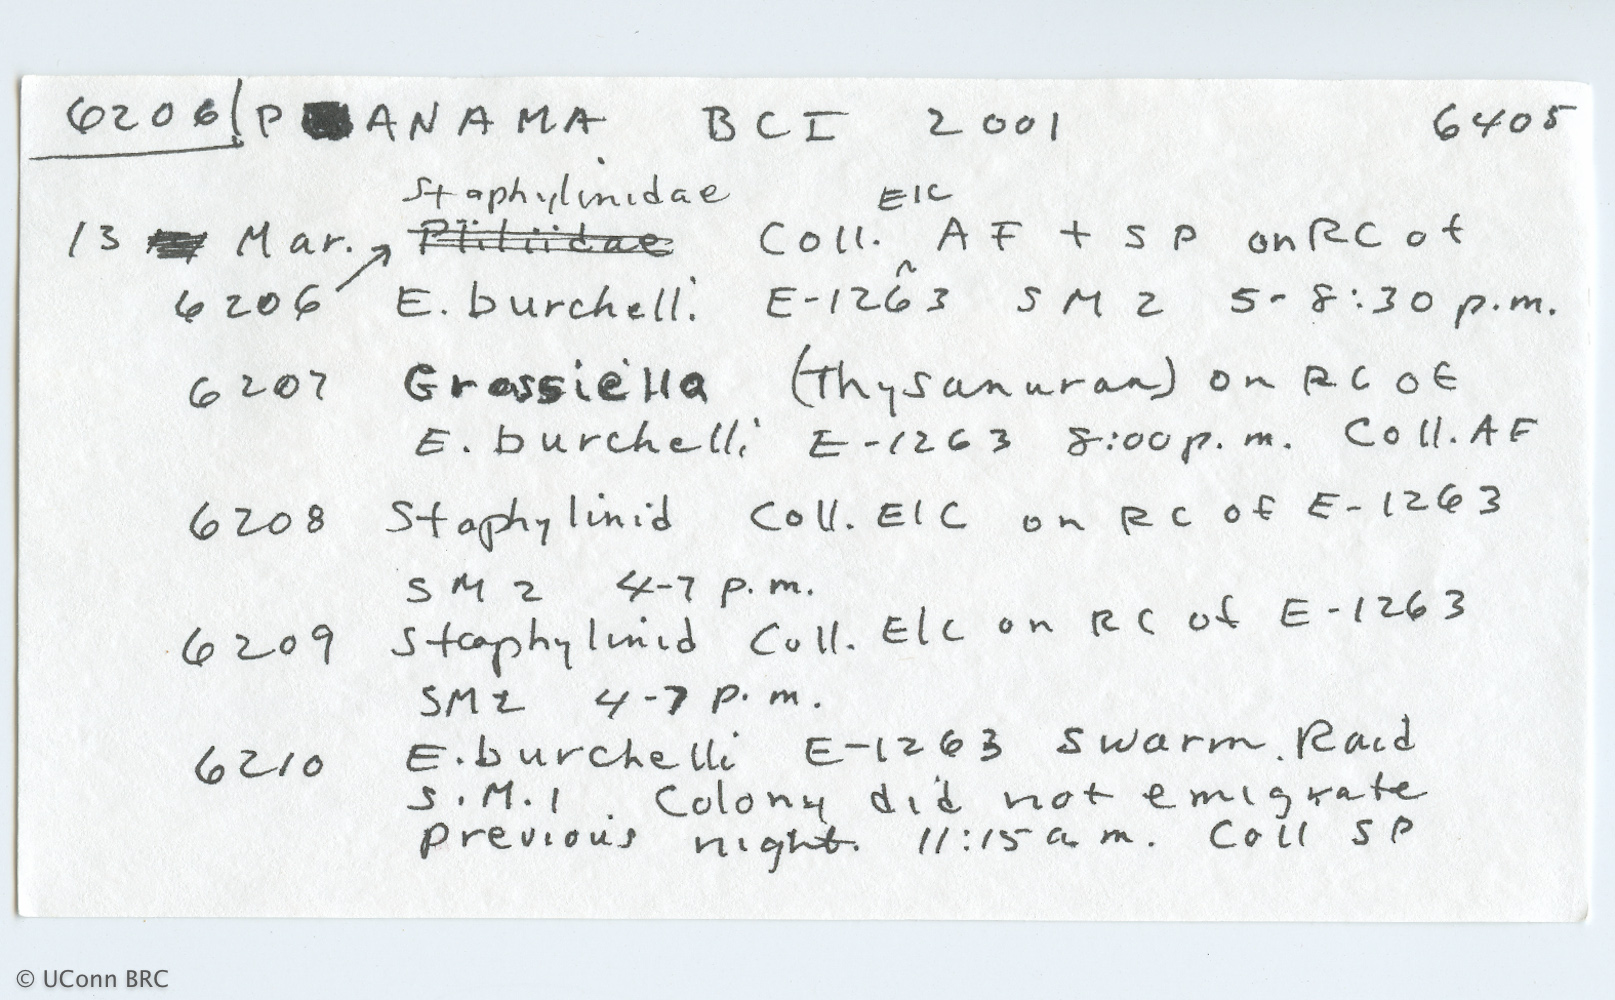 6206 P ANAMA BCI 2001 6405
Staphylinidae EIC
13 Mar. Ptiliidae Coll. AF + SP on RC of
6206 E. burchelli E-1263 SM2 5-8:30 p.m.
6207 Grassiella (Thysanuran) on RC of
E. burchelli E-1263 8:00 p.m. Coll. AF
6208 Staphylinid Coll. EIC on RC of E-1263
SM2 4-7 p.m.
6209 Staphylinid Coll. EIC on RC of E-1263
SM2 4-7 p.m.
6210 E. burchelli E-1263 Swarm Raid
S.M.1 Colony did not emigrate
previous night. 11:15 a.m. Coll SP
© UConn BRC